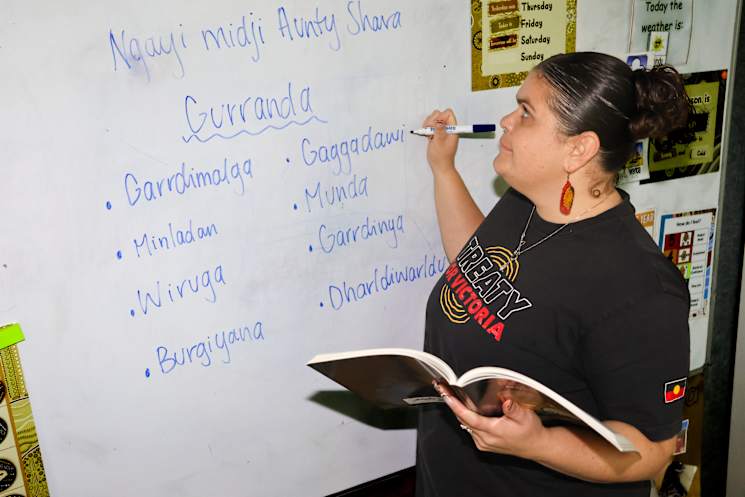 Ngayi midji Aunty Shara
Gurranda
• Garrdimalga
• Minladan
• Wiruga
• Burgiyana
• Gaggadawi
• Munda
• Garrdinya
• Dharldiwarldu
TREATY
FOR VICTORIA
Thursday
Friday
Saturday
Sunday
Today the
weather is:
How do I feel?